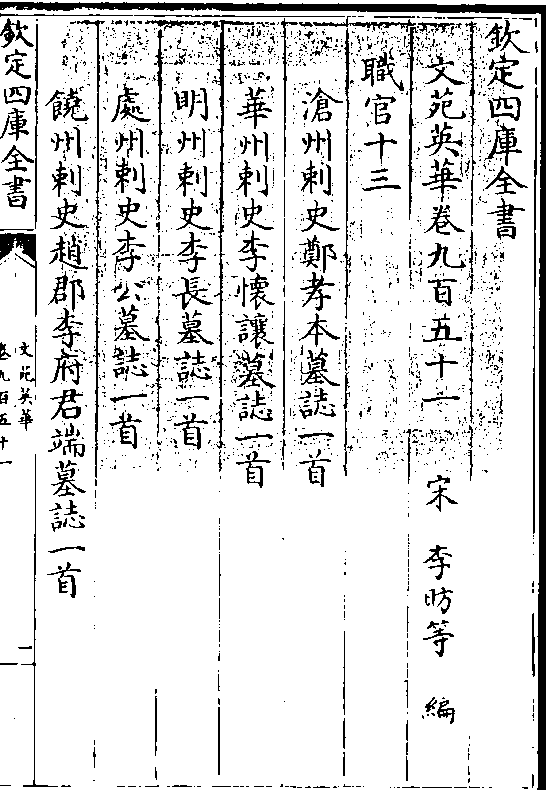 欽定四庫全書
文苑英華卷九百五十一 宋 李昉等 編
職官十三
滄州刺史鄭孝本墓誌一首
華州刺史李懷讓墓誌一首
明州刺史李長墓誌一首
處州刺史李公墓誌一首
饒州刺史趙郡李府君端墓誌一首
欽定四庫全書
文苑英華
卷九百五十一
一